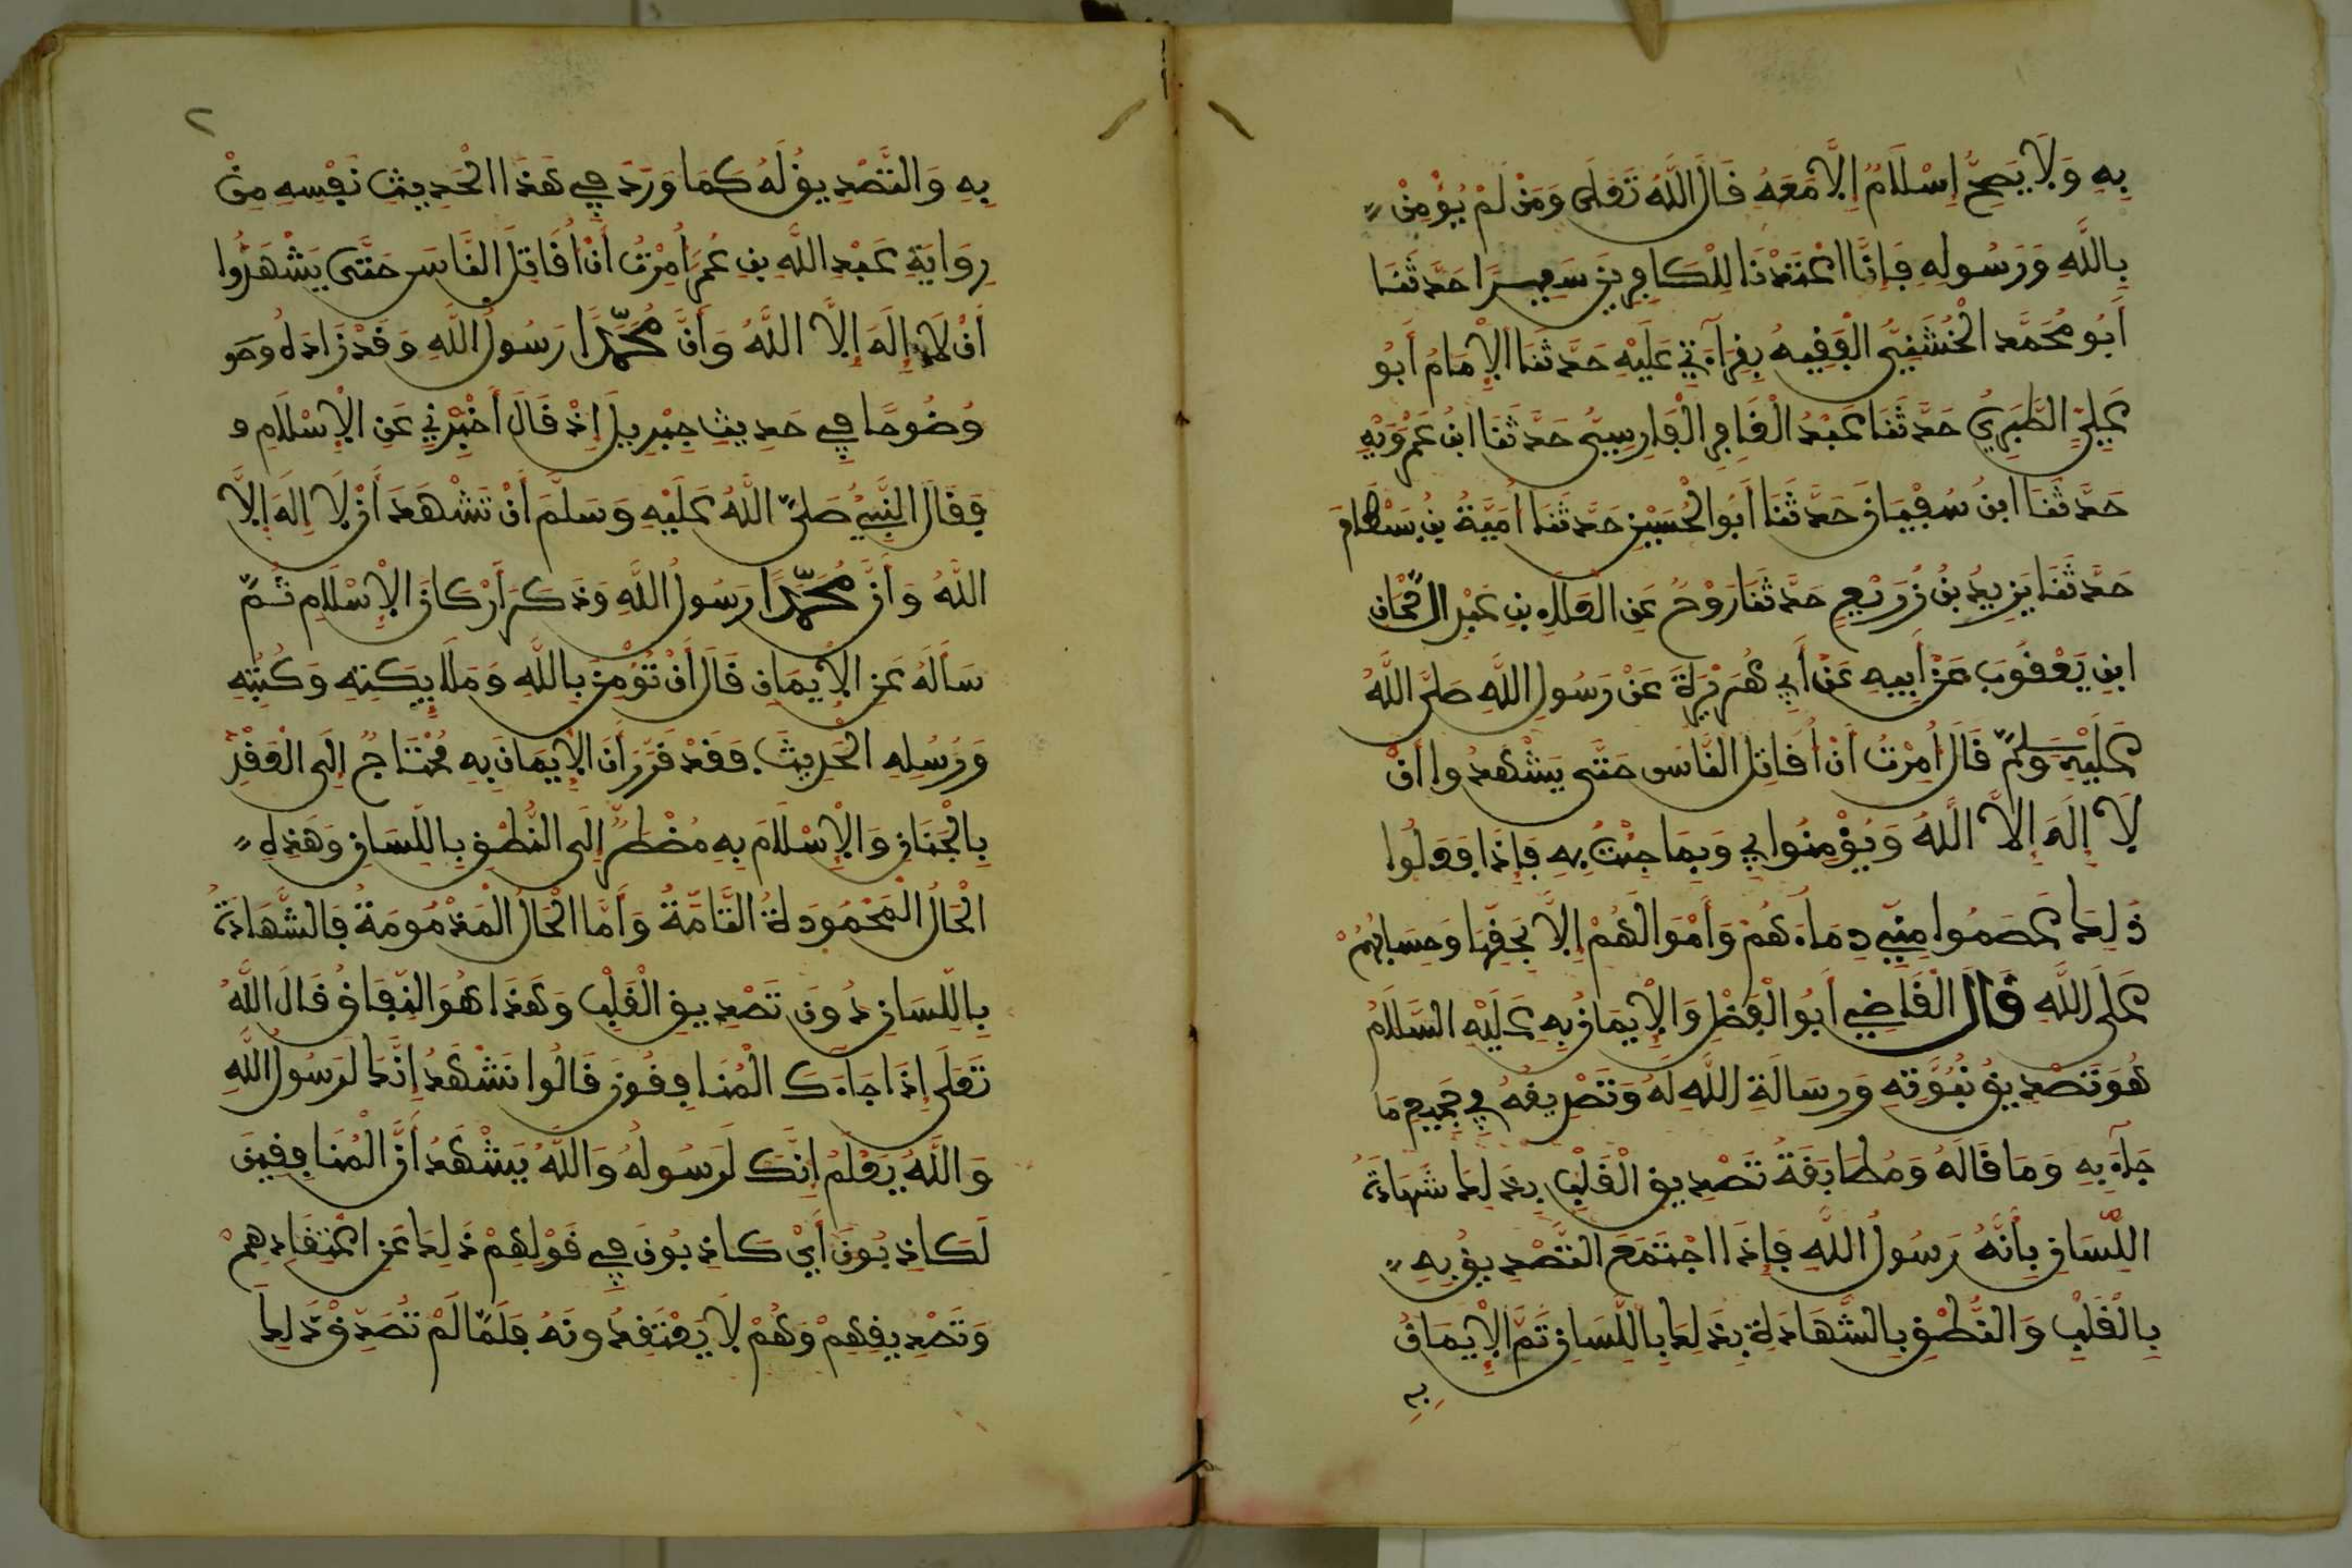 بِهِ وَلَا يَصِحُّ إِسْلَامٌ إِلَّا مَعَهُ قَالَ اللَّهُ تَعَلَى وَمَن لَّمْ يُؤْمِنْ
بِاللَّهِ وَرَسُولِهِ فَإِنَّا أَعْتَدْنَا لِلْكَافِرِينَ سَعِيرًا حَدَّثَنَا
أَبُو مُحَمَّد الْخُشَنِيُّ الْفَقِيهُ بِقِرَاءَتِي عَلَيْهِ حَدَّثَنَا الْإِمَامُ أَبُو
عَلِيٍّ الطَّبَرِيُّ حَدَّثَنَا عَبْدُ الْغَافِرِ الْفَارِسِيُّ حَدَّثَنَا ابْنُ عَمْرَوَيْهِ
حَدَّثَنَا ابْنُ سُفْيَانَ حَدَّثَنَا أَبُو الْحُسَيْنِ حَدَّثَنَا أُمَيَّةُ بْنُ بَسْطَامَ
حَدَّثَنَا يَزِيدُ بْنُ زُرَيْعٍ حَدَّثَنَا رَوْحٌ عَنِ الْعَلَاءِ بْنِ عَبْدِ الرَّحْمَانِ
ابْنِ يَعْقُوبَ عَنْ أَبِيهِ عَنْ أَبِي هُرَيْرَةَ عَنْ رَسُولِ اللَّهِ صَلَّى اللَّهُ
عَلَيْهِ وَسَلَّمَ قَالَ أُمِرْتُ أَنْ أُقَاتِلَ النَّاسَ حَتَّى يَشْهَدُوا أَنْ
لَا إِلَهَ إِلَّا اللَّهُ وَيُؤْمِنُوا بِي وَبِمَا جِئْتُ بِهِ فَإِذَا فَعَلُوا
ذَلِكَ عَصَمُوا مِنِّي دِمَاءَهُمْ وَأَمْوَالَهُمْ إِلَّا بِحَقِّهَا وَحِسَابُهُمْ
عَلَى اللَّهِ قَالَ الْقَاضِي أَبُو الْفَضْلِ وَالْإِيمَانُ بِهِ عَلَيْهِ السَّلَامُ
هُوَ تَصْدِيقُ نُبُوَّتِهِ وَرِسَالَةِ اللَّهِ لَهُ وَتَصْدِيقُهُ فِي جَمِيعِ مَا
جَاءَ بِهِ وَمَا قَالَهُ وَمُطَابَقَةُ تَصْدِيقِ الْقَلْبِ بِذَلِكَ شَهَادَةَ
اللِّسَانِ بِأَنَّهُ رَسُولُ اللَّهِ فَإِذَا اجْتَمَعَ التَّصْدِيقُ بِهِ
بِالْقَلْبِ وَالنُّطْقِ بِالشَّهَادَةِ بِذَلِكَ بِاللِّسَانِ تَمَّ الْإِيمَانُ
بِهِ
٢
بِهِ وَالتَّصْدِيقُ لَهُ كَمَا وَرَدَ فِي هَذَا الْحَدِيثِ نَفْسِهِ مِنْ
رِوَايَةِ عَبْدِ اللَّهِ بْنِ عُمَرَ أُمِرْتُ أَنْ أُقَاتِلَ النَّاسَ حَتَّى يَشْهَدُوا
أَنْ لَا إِلَهَ إِلَّا اللَّهُ وَأَنَّ مُحَمَّدًا رَسُولُ اللَّهِ وَقَدْ زَادَهُ وَضُو
وُضُوحًا فِي حَدِيثِ جِبْرِيلَ إِذْ قَالَ أَخْبِرْنِي عَنِ الْإِسْلَامِ و
فَقَالَ النَّبِيُّ صَلَّى اللَّهُ عَلَيْهِ وَسَلَّمَ أَنْ تَشْهَدَ أَنْ لَا إِلَهَ إِلَّا
اللَّهُ وَأَنَّ مُحَمَّدًا رَسُولُ اللَّهِ وَذَكَرَ أَرْكَانَ الْإِسْلَامِ ثُمَّ
سَأَلَهُ عَنِ الْإِيمَانِ قَالَ أَنْ تُؤْمِنَ بِاللَّهِ وَمَلَائِكَتِهِ وَكُتُبِهِ
وَرُسُلِهِ الْحَدِيثَ فَقَدْ قَرَّرَ أَنَّ الْإِيمَانَ بِهِ مُحْتَاجٌ إِلَى الْعَقْدِ
بِالْجَنَانِ وَالْإِسْلَامَ بِهِ مُضْطَرٌّ إِلَى النُّطْقِ بِاللِّسَانِ وَهَذِهِ
الْحَالُ الْمَحْمُودَةُ التَّامَّةُ وَأَمَّا الْحَالُ الْمَذْمُومَةُ فَالشَّهَادَةُ
بِاللِّسَانِ دُونَ تَصْدِيقِ الْقَلْبِ وَهَذَا هُوَ النِّفَاقُ قَالَ اللَّهُ
تَعَلَى إِذَا جَاءَكَ الْمُنَافِقُونَ قَالُوا نَشْهَدُ إِنَّكَ لَرَسُولُ اللَّهِ
وَاللَّهُ يَعْلَمُ إِنَّكَ لَرَسُولُهُ وَاللَّهُ يَشْهَدُ أَنَّ الْمُنَافِقِينَ
لَكَاذِبُونَ أَيْ كَاذِبُونَ فِي قَوْلِهِمْ ذَلِكَ عَنِ اعْتِقَادِهِمْ
وَتَصْدِيقِهِمْ وَهُمْ لَا يَعْتَقِدُونَهُ فَلَمَّا لَمْ تُصَدِّقْ ذَلِكَ